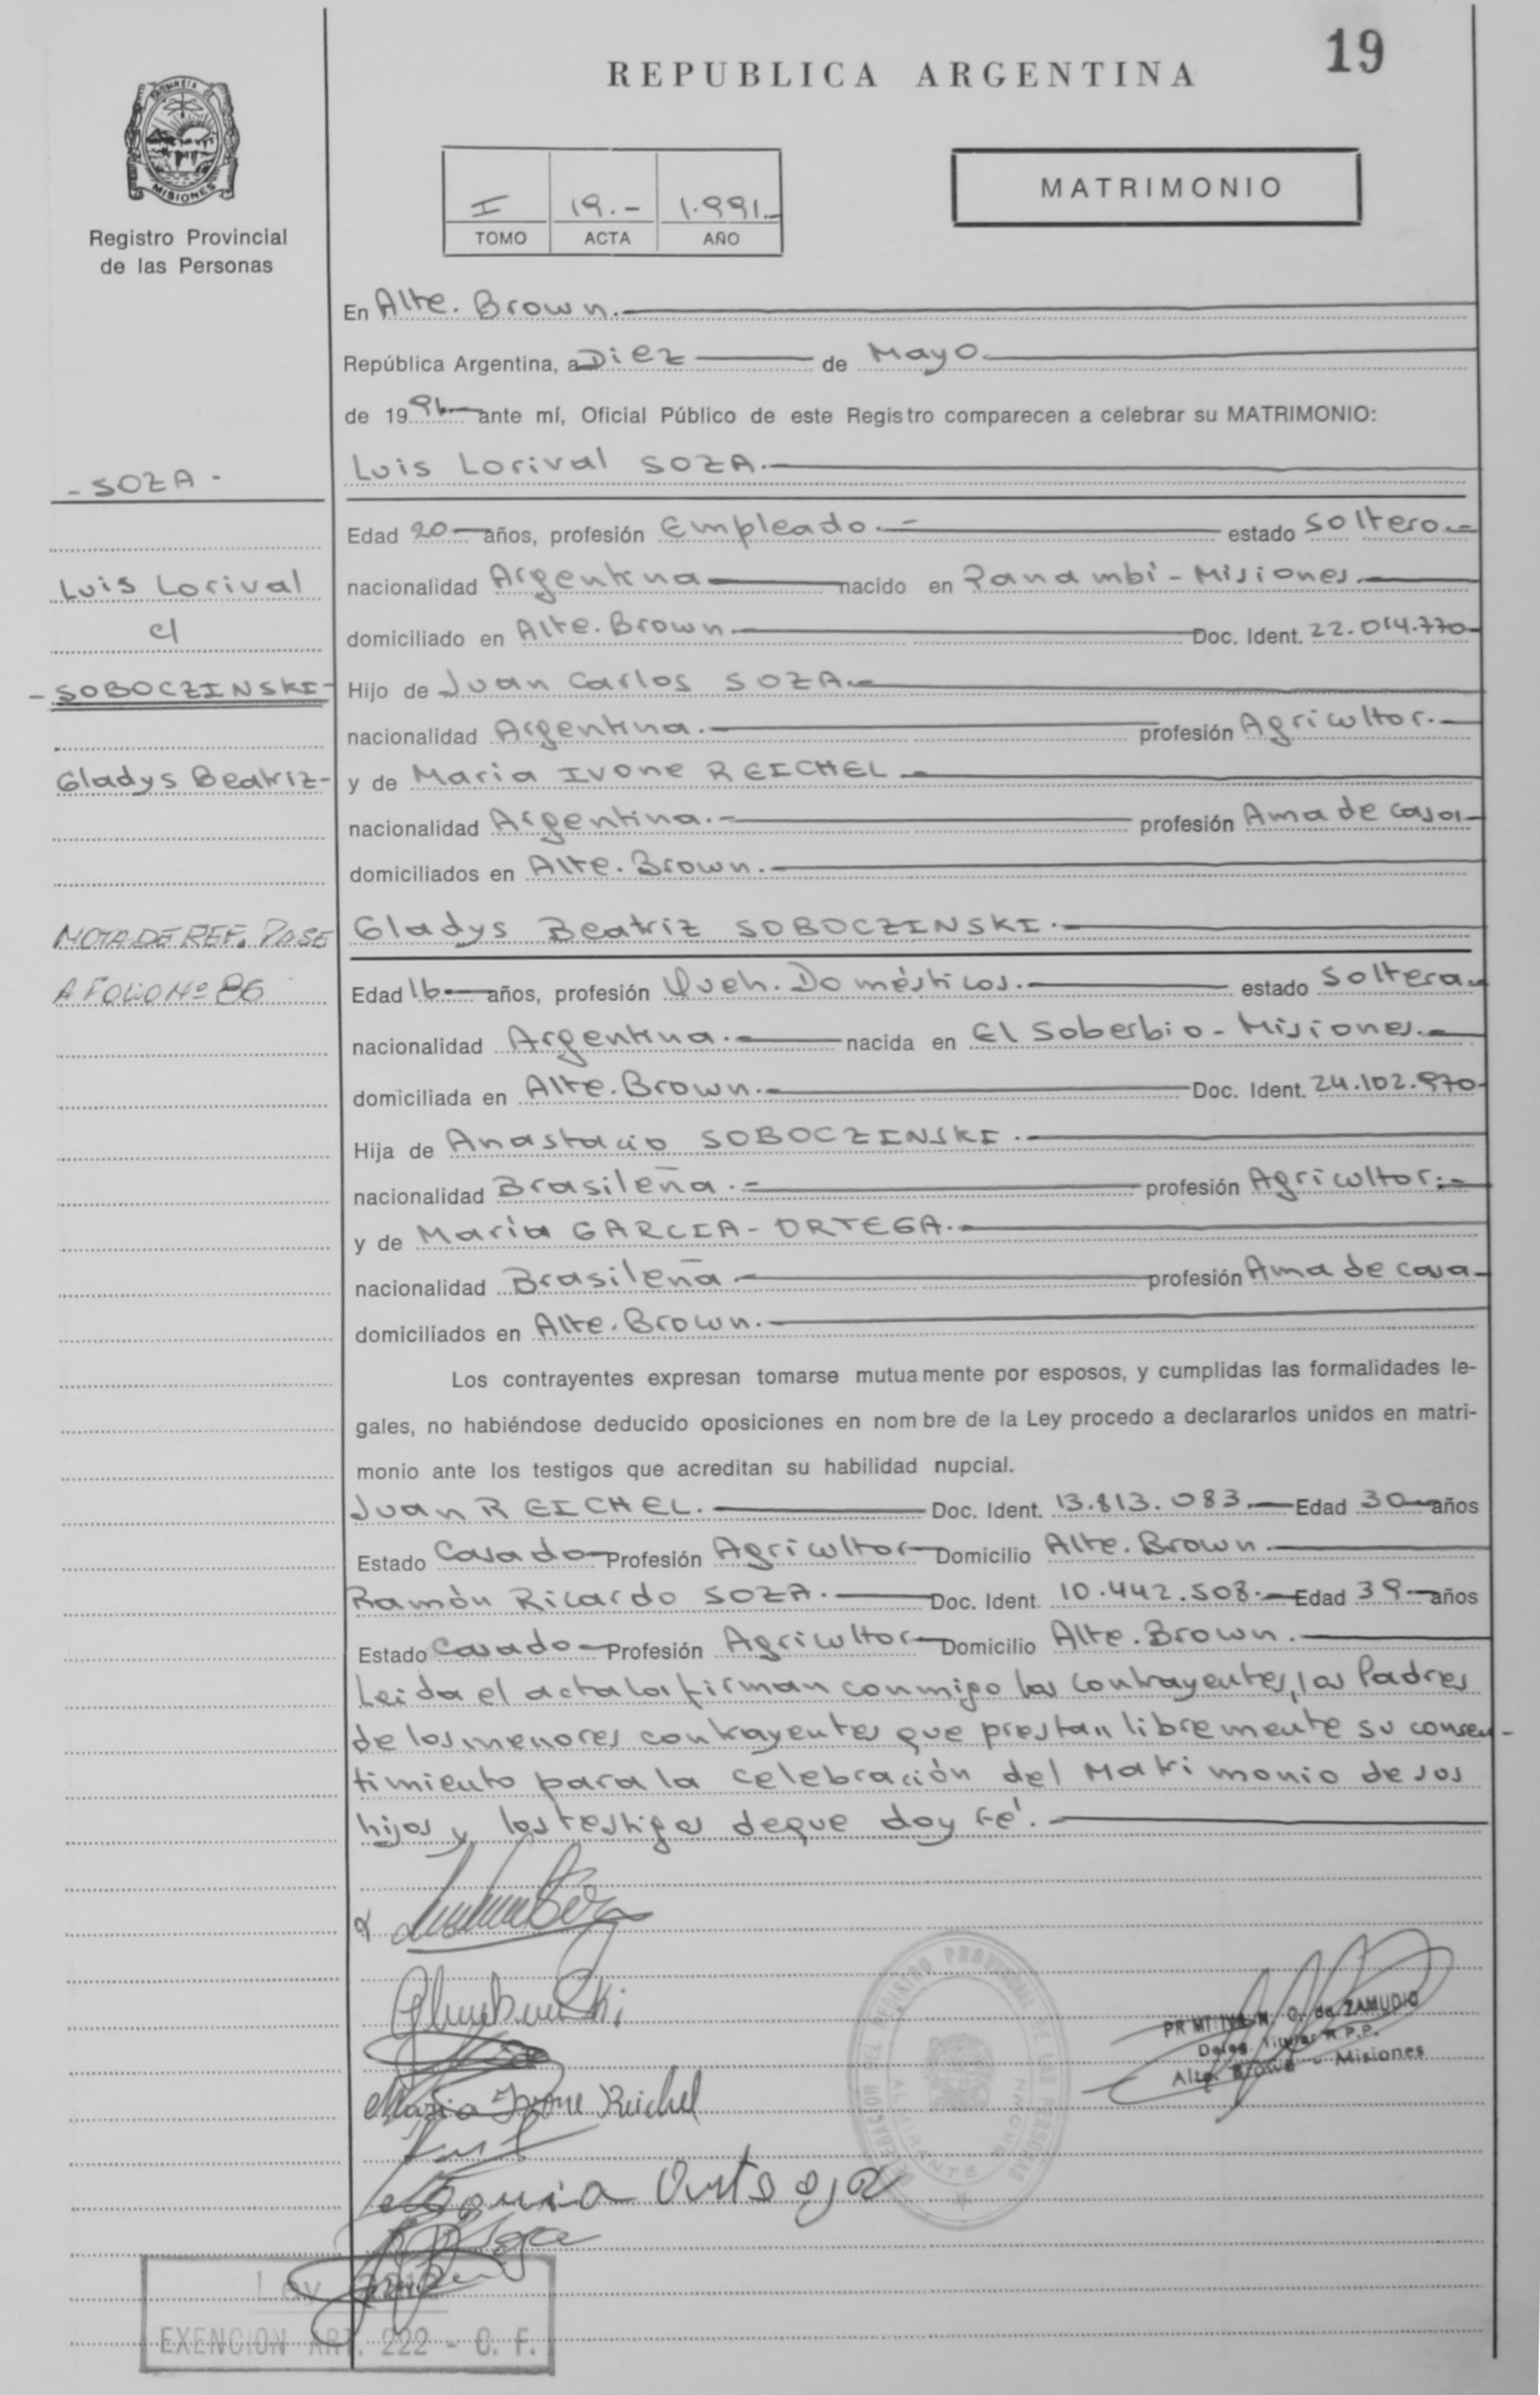 19
REPUBLICA ARGENTINA
PROVINCIA DE
MISIONES
Registro Provincial
de las Personas
I 19.- 1.991.-
TOMO ACTA AÑO
MATRIMONIO
En Alte. Brown.
República Argentina, a Diez de Mayo
de 1991 ante mí, Oficial Público de este Registro comparecen a celebrar su MATRIMONIO:
- SOZA -
Luis Lorival SOZA.
Edad 20 años, profesión Empleado.- estado Soltero.-
Luis Lorival
nacionalidad Argentina nacido en Panambí - Misiones.
c/
domiciliado en Alte. Brown. Doc. Ident. 22.014.770
- SOBOCZINSKI -
Hijo de Juan Carlos SOZA.
nacionalidad Argentina. profesión Agricultor.
Gladys Beatriz-
y de Maria Ivone REICHEL
nacionalidad Argentina.- profesión Ama de casa
domiciliados en Alte. Brown.
NOTA DE REF. PASE
Gladys Beatriz SOBOCZINSKI.
A FOLIO Nº 86
Edad 16 años, profesión Queh. Domésticos. estado Soltera
nacionalidad Argentina. nacida en El Soberbio - Misiones.
domiciliada en Alte. Brown. Doc. Ident. 24.102.970
Hija de Anastacio SOBOCZINSKI.
nacionalidad Brasileña.- profesión Agricultor.-
y de María GARCIA - ORTEGA.
nacionalidad Brasileña profesión Ama de casa
domiciliados en Alte. Brown.
Los contrayentes expresan tomarse mutuamente por esposos, y cumplidas las formalidades le-
gales, no habiéndose deducido oposiciones en nombre de la Ley procedo a declararlos unidos en matri-
monio ante los testigos que acreditan su habilidad nupcial.
Juan REICHEL. Doc. Ident. 13.813.083. Edad 30 años
Estado Casado Profesión Agricultor Domicilio Alte. Brown.
Ramón Ricardo SOZA. Doc. Ident. 10.442.508. Edad 39 años
Estado Casado Profesión Agricultor Domicilio Alte. Brown.
Leida el acta la firman conmigo los contrayentes, los Padres
de los menores contrayentes que prestan libremente su consen-
timiento para la celebración del Matrimonio de sus
hijos y los testigos de que doy Fé.
REGISTRO PROVINCIAL DE LAS PERSONAS
ALMIRANTE BROWN
de ZAMUDIO
R.P.P.
Alte. Brown - Misiones
Maria Ivone Reichel
Ortega
Ley
EXENCION ART. 222 - C. F.